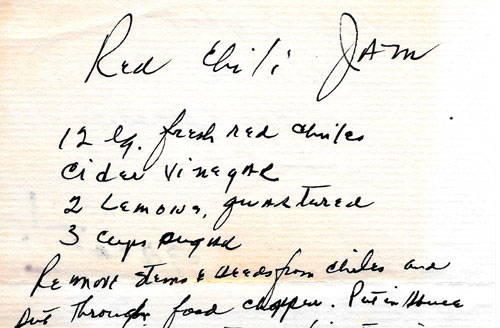 Red Chili Jam
12 lg. fresh red chiles
cider vinegar
2 Lemons, quartered
3 cups sugar
Remove stems & seeds from chiles and
put through food chopper. Put in